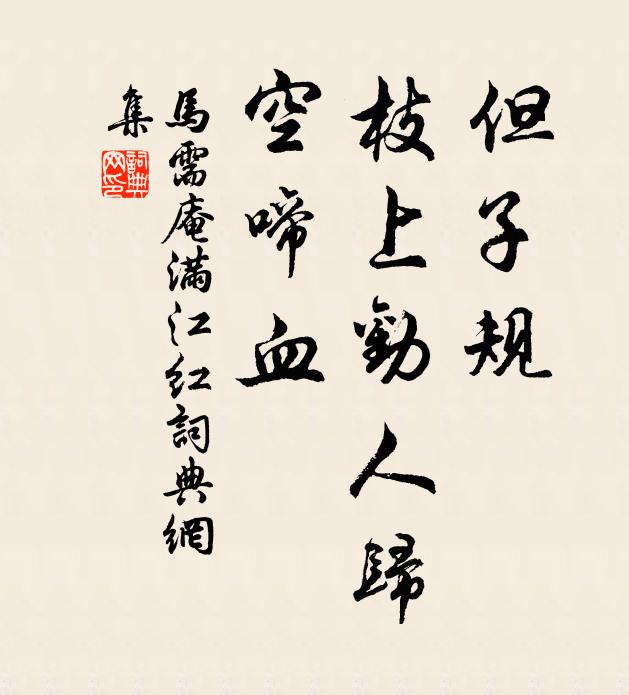 但子規
枝上勸人歸
空啼血
馬需庵滿江紅詞典網
集
詞典網印